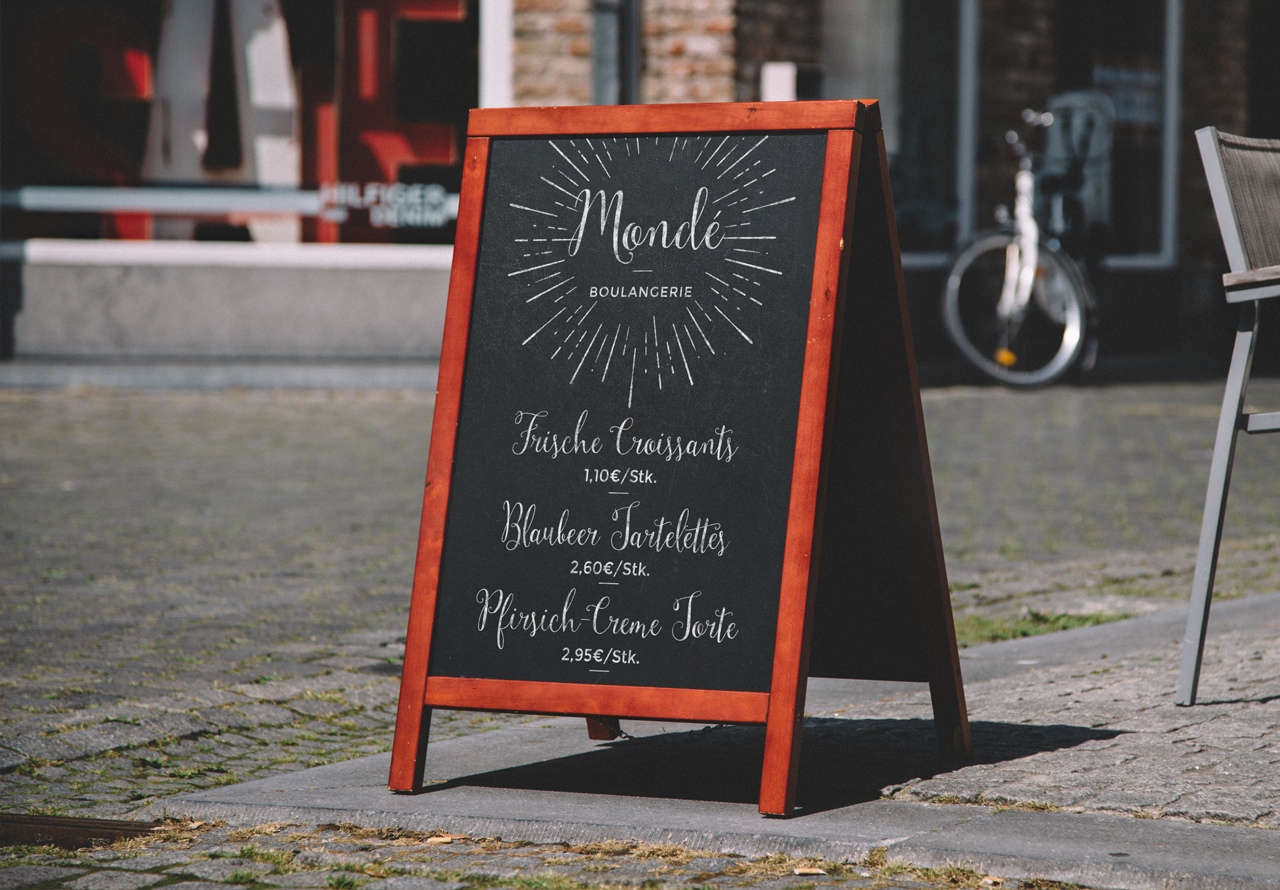 Mondé
BOULANGERIE
Frische Croissants
1,10€/Stk.
Blaubeer Tartelettes
2,60€/Stk.
Pfirsich-Creme Torte
2,95€/Stk.
HILFIGER
DENIM